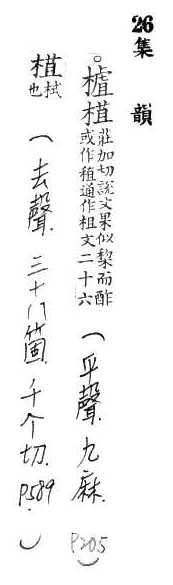 26 集韻
。樝 莊加切說文果似棃而酢
或作 通作柤文二十六
(平聲. 九麻. P205)
栻也 (去聲. 三十八箇. 千个切. P589.)